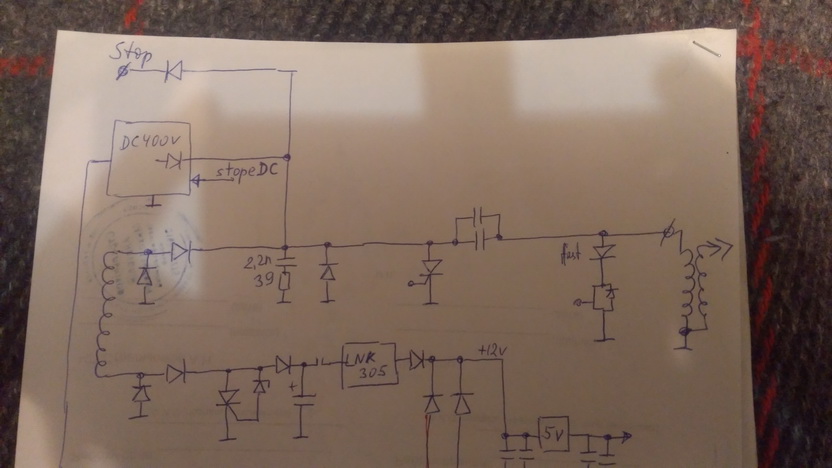 Stop
DC400V
stopeDC
2,2n
39
fast
+
LNK
305
+12v
5v